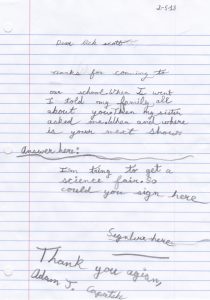 2-5-13
Dear Rick Scott
Thanks for coming to
our school. When I went
I told my family all
about you. Then my sister
asked me. When and where
is your next show.
Answer here:
I'm trying to get a
science fair. So
could you sign here
Signature here:
Thank you again,
Adam J.